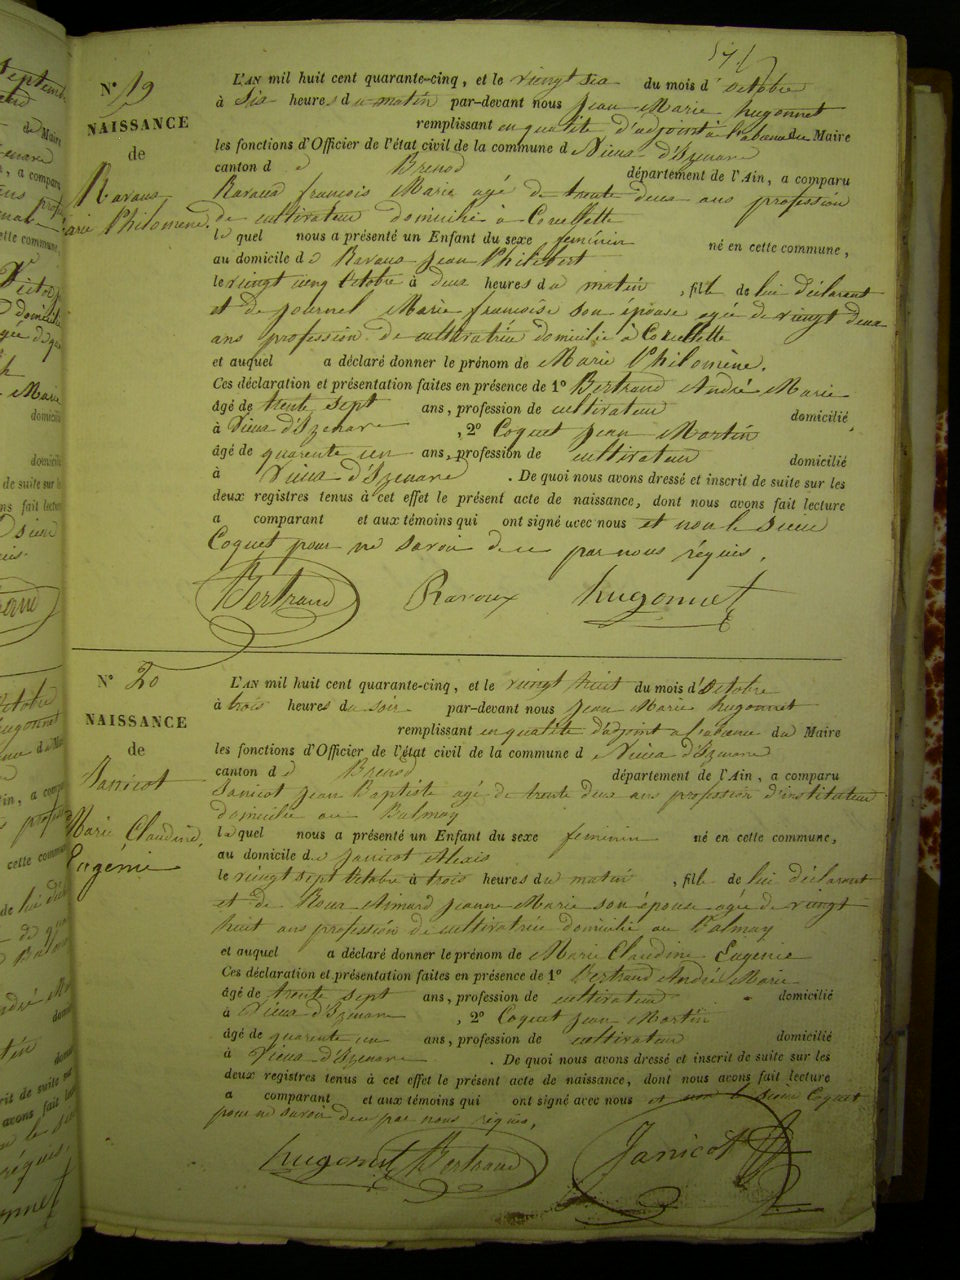 N° 19
NAISSANCE
de
Ravaux
Marie Philomène.
L'AN mil huit cent quarante-cinq, et le vingt six du mois d'octobre
à six heures du matin par-devant nous Jean Marie hugonnet
remplissant en qualité d'adjoint à l'absence du Maire
les fonctions d'Officier de l'état civil de la commune de Vieux d'Izenave
canton de Brenod département de l'Ain, a comparu
Ravaux françois Marie agé de trente deux ans profession
de cultivateur domicilié à
lequel nous a présenté un Enfant du sexe feminin né en cette commune,
au domicile de Ravaux Jean Philibert
le vingt cinq Octobre à deux heures du matin, fille de lui déclarant
et de Journel Marie françoise son épouse agée de vingt deux
ans profession de cultivatrice domicilie à
et auquel a déclaré donner le prénom de Marie Philomène.
Ces déclaration et présentation faites en présence de 1° Bertrand André Marie
âgé de trente sept ans, profession de cultivateur domicilié
à Vieux d'Izenave, 2° Coquet Jean Martin
âgé de quarente un ans, profession de cultivateur domicilié
à Vieux d'Izenave. De quoi nous avons dressé et inscrit de suite sur les
deux registres tenus à cet effet le présent acte de naissance, dont nous avons fait lecture
a comparant et aux témoins qui ont signé avec nous et non le sieur
Coquet pour ne savoir de ce par nous réquis.
Bertrand Ravoux hugonnet
N° 20
NAISSANCE
de
Janicot
Marie Claudine,
Eugénie
L'AN mil huit cent quarante-cinq, et le vingt huit du mois d'Octobre
à trois heures du soir par-devant nous Jean Marie hugonnet
remplissant en qualité d'adjoint a l'absence du Maire
les fonctions d'Officier de l'état civil de la commune de Vieux d'Izenave
canton de Brenod département de l'Ain, a comparu
Janicot Jean Baptiste agé de trente deux ans profession d'instituteur
domicilié au Balmay
lequel nous a présenté un Enfant du sexe feminin né en cette commune,
au domicile de Janicot Alexis
le vingt sept Octobre à trois heures du matin, fille de lui déclarant
et de Roux Aimard Jeanne Marie son épouse agée de vingt
huit ans profession de cultivatrice domicilié au Balmay
et auquel a déclaré donner le prénom de Marie Claudine Eugénie
Ces déclaration et présentation faites en présence de 1° Bertrand André Marie
âgé de trente sept ans, profession de cultivateur domicilié
à Vieux d'Izenave, 2° Coquet Jean Martin
âgé de quarente un ans, profession de cultivateur domicilié
à Vieux d'Izenave. De quoi nous avons dressé et inscrit de suite sur les
deux registres tenus à cet effet le présent acte de naissance, dont nous avons fait lecture
a comparant et aux témoins qui ont signé avec nous et non le sieur Coquet
pour ne savoir de ce par nous réquis,
hugonnet Bertrand Janicot